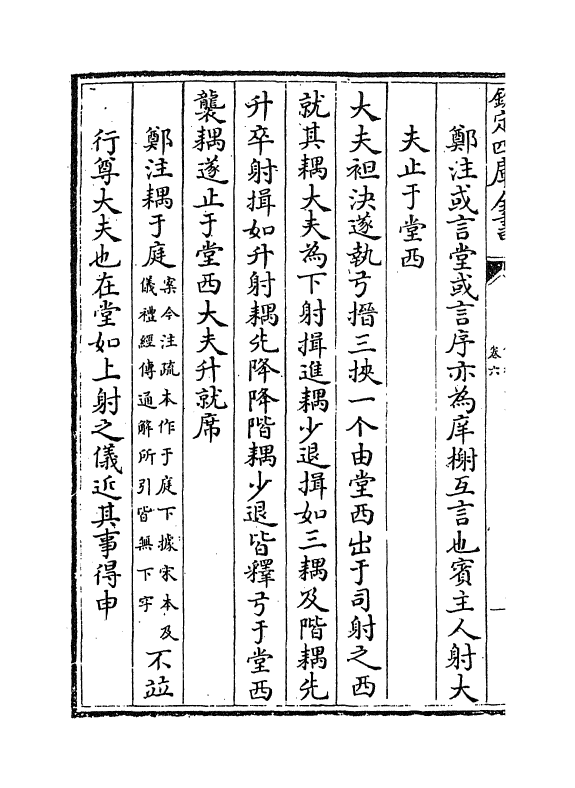 欽定四庫全書
卷六
鄭注或言堂或言序亦為庠榭互言也賓主人射大
夫止于堂西
大夫袒決遂執弓搢三挾一个由堂西出于司射之西
就其耦大夫為下射揖進耦少退揖如三耦及階耦先
升卒射揖如升射耦先降降階耦少退皆釋弓于堂西
襲耦遂止于堂西大夫升就席
鄭注耦于庭案今注疏本作于庭下據宋本及儀禮經傳通解所引皆無下字不竝
行尊大夫也在堂如上射之儀近其事得申